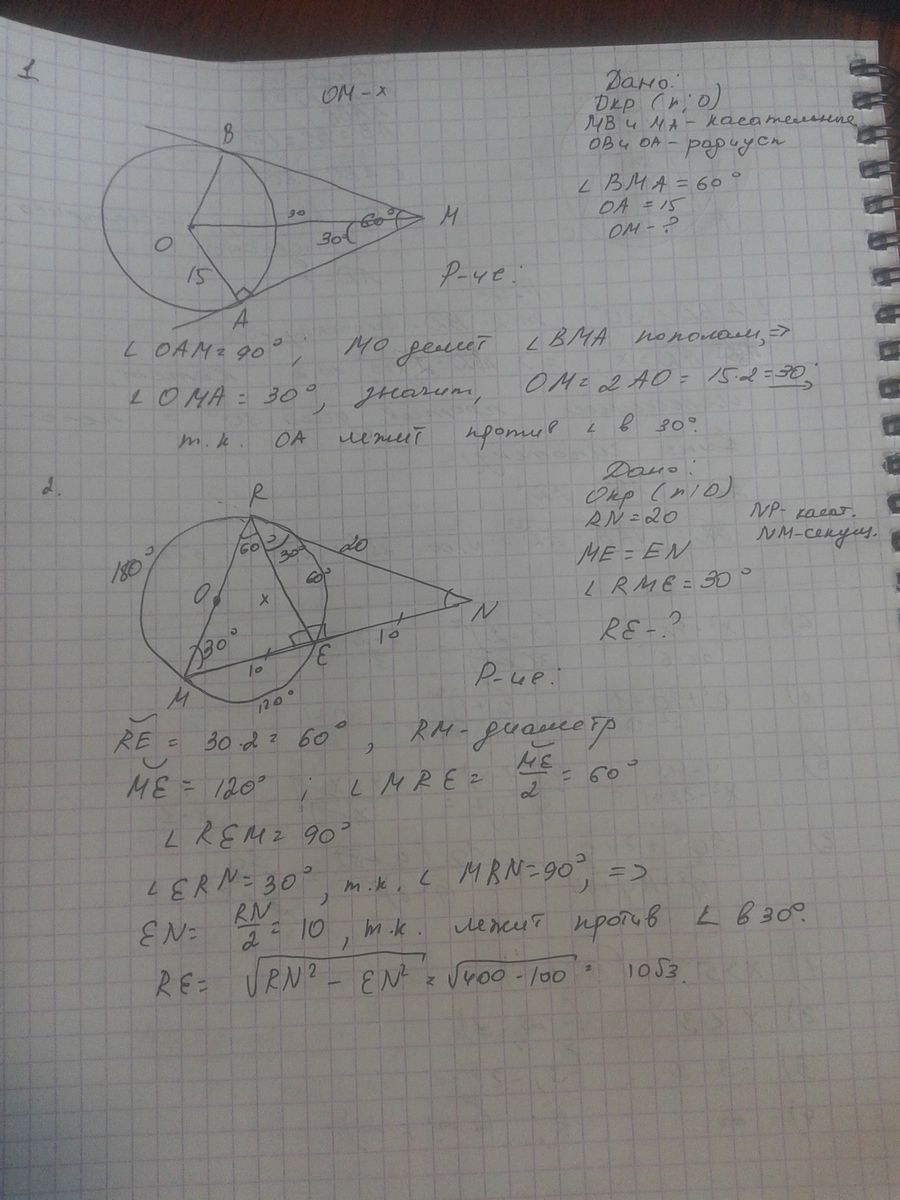 1
OM - x
Дано:
Окр (r; O)
MB и MA - касательные
OB и OA - радиусы
∠ BMA = 60°
OA = 15
OM - ?
B
30
60°
M
O
30
15
A
Р-ие:
∠ OAM = 90° ; MO делит ∠ BMA пополам, =>
∠ OMA = 30°, значит, OM = 2 AO = 15·2 = 30;
т.к. OA лежит против ∠ в 30°.
2.
Дано:
Окр (r; O)
RN = 20
NP - касат.
NM - секущ.
ME = EN
∠ RME = 30°
RE - ?
R
60° 30° 20
180°
60°
O x
N
30° 10 10
E
M
120°
Р-ие:
R͝E = 30·2 = 60° , RM - диаметр
M͝E = 120° ; ∠ MRE = M͝E/2 = 60°
∠ REM = 90°
∠ ERN = 30°, т.к. ∠ MRN = 90°, =>
EN = RN/2 = 10 , т.к. лежит против ∠ в 30°.
RE = √(RN² - EN²) = √(400 - 100) = 10√3.